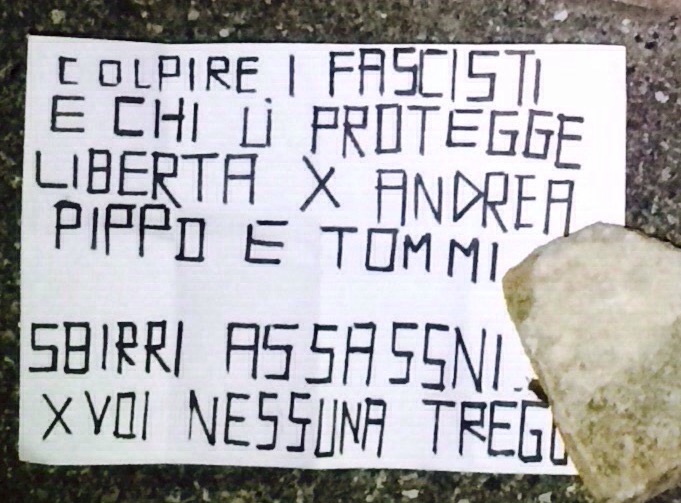 COLPIRE I FASCISTI
E CHI LI PROTEGGE
LIBERTA X ANDREA
PIPPO E TOMMI
SBIRRI ASSASSNI..
X VOI NESSUNA TREGU